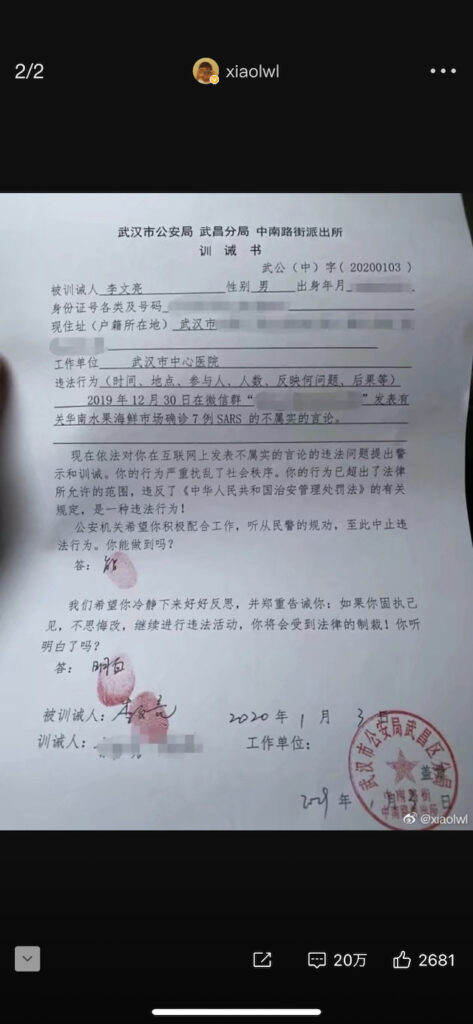 2/2
xiaolwl
武汉市公安局 武昌分局 中南路街派出所
训诫书
武公（中）字（20200103）
被训诫人 李文亮 性别 男 出身年月
身份证号各类及号码
现住址（户籍所在地） 武汉市
工作单位 武汉市中心医院
违法行为（时间、地点、参与人、人数、反映何问题、后果等）
2019年12月30日在微信群“ ”发表有
关华南水果海鲜市场确诊7例SARS的不属实的言论。
现在依法对你在互联网上发表不属实的言论的违法问题提出警
示和训诫。你的行为严重扰乱了社会秩序。你的行为已超出了法律
所允许的范围，违反了《中华人民共和国治安管理处罚法》的有关
规定，是一种违法行为！
公安机关希望你积极配合工作，听从民警的规劝，至此中止违
法行为。你能做到吗？
答：能
我们希望你冷静下来好好反思，并郑重告诫你：如果你固执己
见，不思悔改，继续进行违法活动，你将会受到法律的制裁！你听
明白了吗？
答：明白
被训诫人：李文亮 2020年1月3日
训诫人： 工作单位：
武汉市公安局武昌区分局
中南路街
派出所
盖章
年 月 日
@xiaolwl
20万
2681